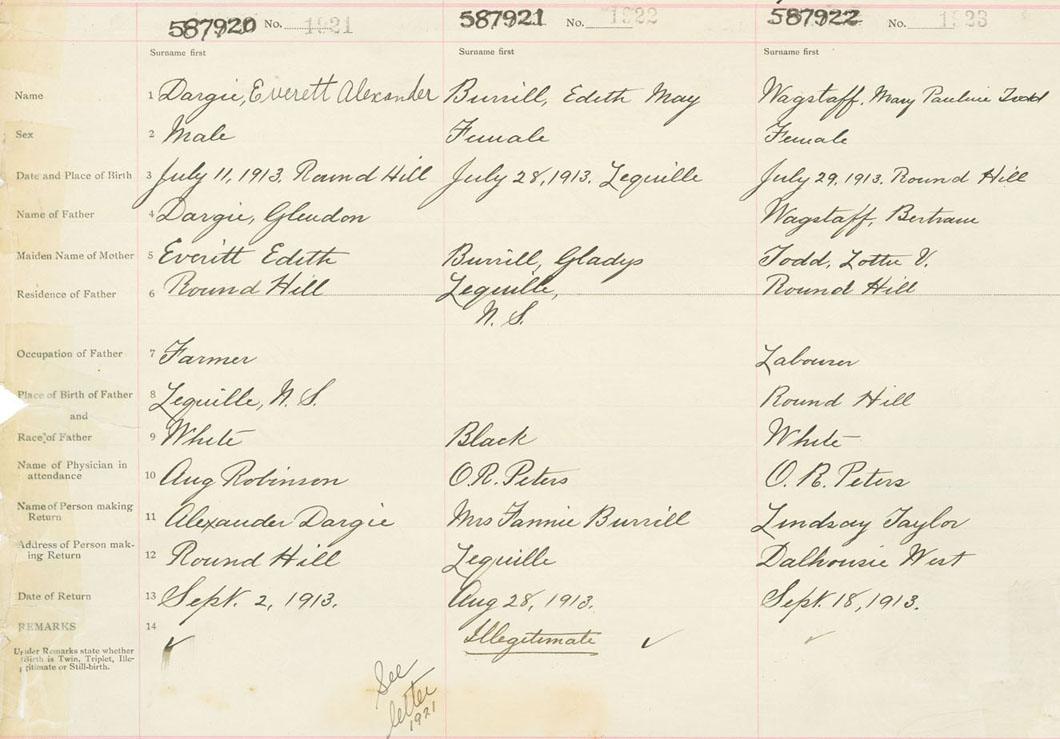 587920 No. 1921 587921 No. 1922 587922 No. 1923
Surname first Surname first Surname first
Name 1 Dargie, Everett Alexander Burrill, Edith May Wagstaff, Mary Pauline Todd
Sex 2 Male Female Female
Date and Place of Birth 3 July 11, 1913, Round Hill July 28, 1913. Lequille July 29, 1913. Round Hill
Name of Father 4 Dargie, Glendon Wagstaff, Bertram
Maiden Name of Mother 5 Everitt Edith Burrill, Gladys Todd, Lottie V.
Residence of Father 6 Round Hill Lequille, Round Hill
N. S.
Occupation of Father 7 Farmer Labourer
Place of Birth of Father 8 Lequille, N. S. Round Hill
and
Race of Father 9 White Black White
Name of Physician in
attendance 10 Aug Robinson O. R. Peters O. R. Peters
Name of Person making
Return 11 Alexander Dargie Mrs Fannie Burrill Lindsay Taylor
Address of Person mak-
ing Return 12 Round Hill Lequille Dalhousie West
Date of Return 13 Sept. 2, 1913. Aug 28, 1913. Sept. 18, 1913.
REMARKS 14 Illegitimate
Under Remarks state whether
Birth is Twin, Triplet, Ille-
gitimate or Still-birth.
See
letter
1921